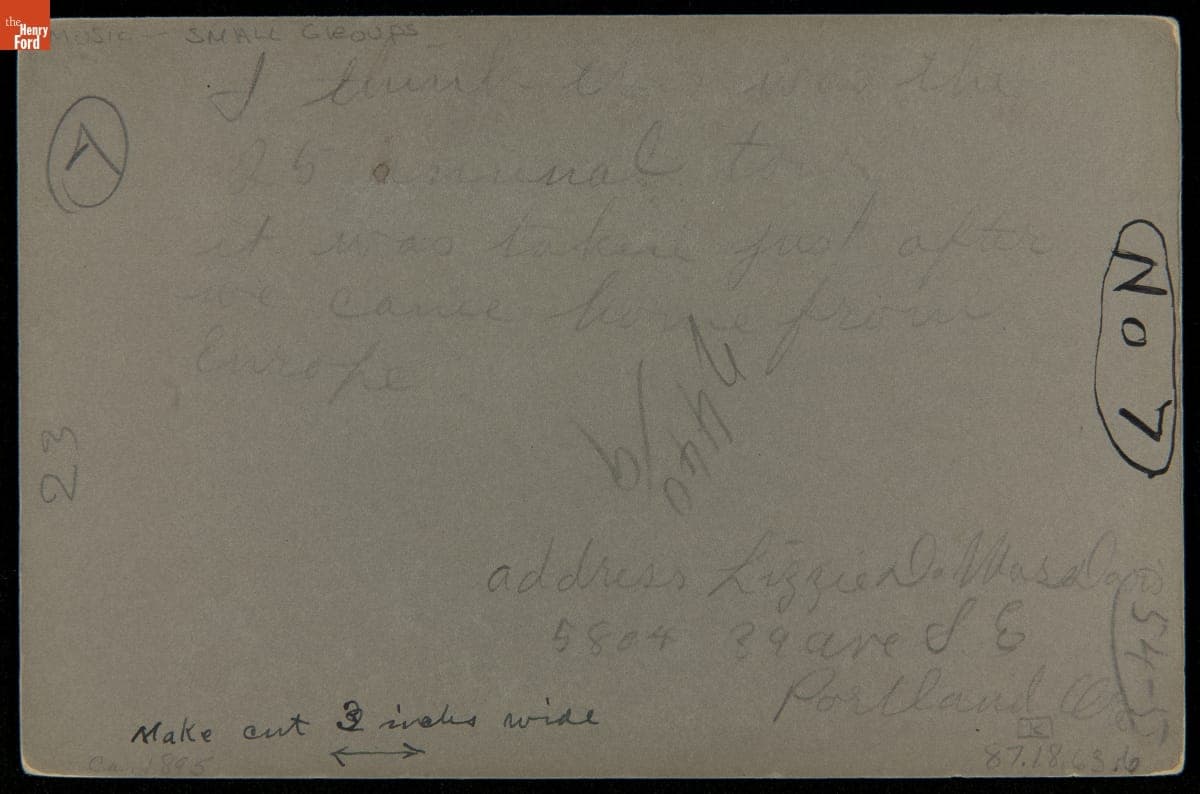 the
Henry
Ford
MUSIC - SMALL GROUPS
I think was the
25 annual
it was taken just after
we came home from
Europe
7
No 7
23
address Lizzie D.
5804 39 ave S E
Portland
Make cut 3 inches wide
Ca. 1895
87.18.63.6